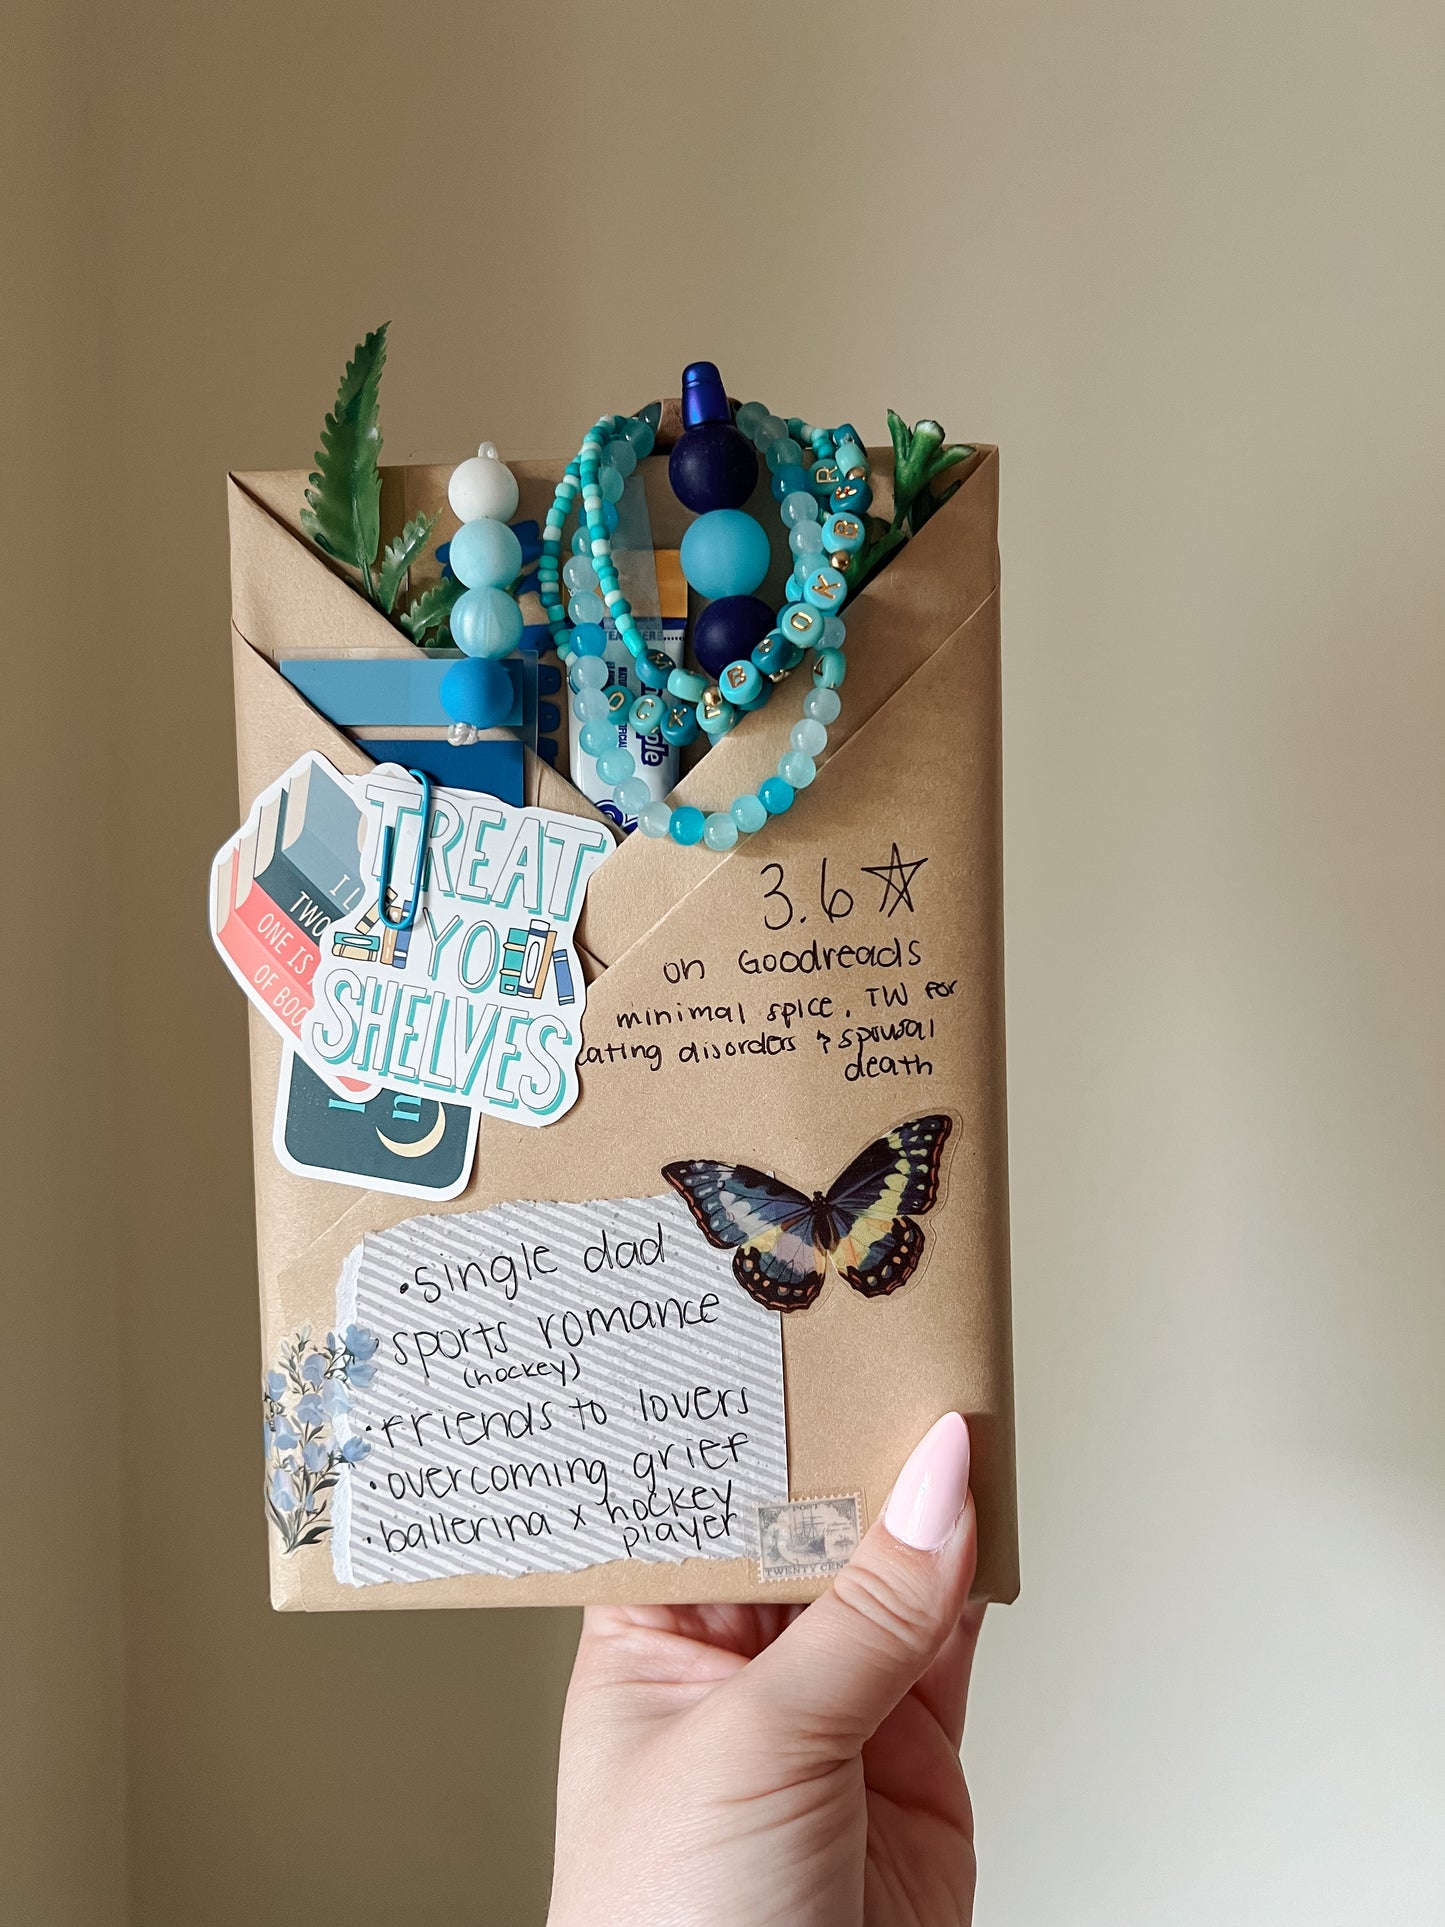 TREAT
YO
SHELVES
I L
TWO
ONE IS
OF BOO
BOOK
3.6
on Goodreads
minimal spice, TW for
eating disorders & spousal
death
• single dad
sports romance
(hockey)
• friends to lovers
• overcoming grief
• ballerina x hockey
player
POST
TWENTY CEN